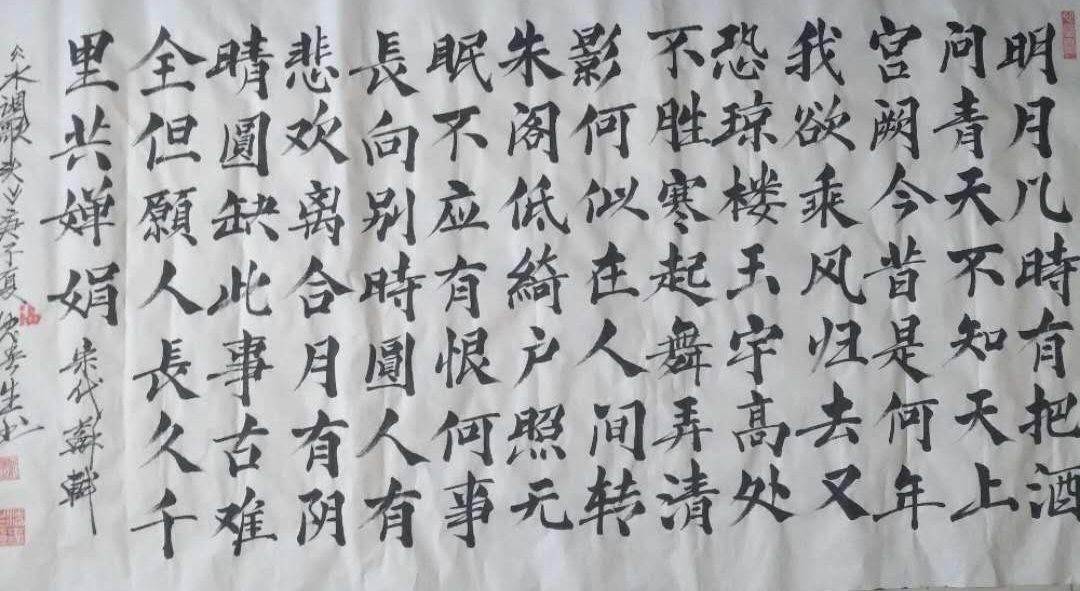 明月几時有把酒
问青天不知天上
宫阙今昔是何年
我欲乘风归去又
恐琼楼玉宇高处
不胜寒起舞弄清
影何似在人间转
朱阁低綺户照无
眠不应有恨何事
長向别時圓人有
悲欢离合月有阴
晴圓缺此事古难
全但願人長久千
里共婵娟 宋代蘇軾
《水调歌头》庚子夏 生书